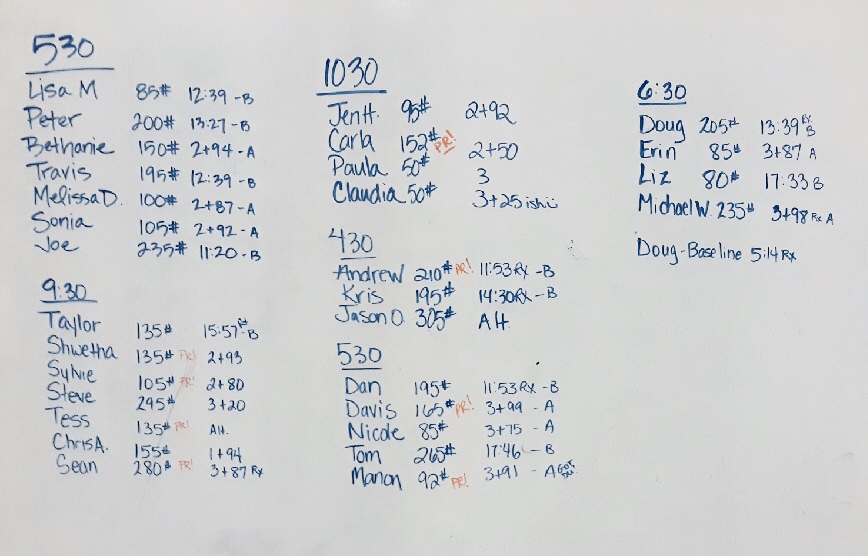 530
Lisa M 85# 12:39 - B
Peter 200# 13:27 - B
Bethanie 150# 2+94 - A
Travis 195# 12:39 - B
Melissa D. 100# 2+87 - A
Sonia 105# 2+92 - A
Joe 235# 11:20 - B
9:30
Taylor 135# 15:57 Rx - B
Shwetha 135# PR! 2+93
Sylvie 105# PR! 2+80
Steve 295# 3+20
Tess 135# PR! Alt.
Chris A. 155# 1+94
Sean 280# PR! 3+87 Rx
1030
Jen H. 95# 2+92
Carla 152# PR! 2+50
Paula 50# 3
Claudia 50# 3+25ish
430
Andrew 210# PR! 11:53 RX - B
Kris 195# 14:30 RX - B
Jason O. 305# Alt.
530
Dan 195# 11:53 RX - B
Davis 165# PR! 3+99 - A
Nicole 85# 3+75 - A
Tom 265# 17:46 - B
Manon 92# PR! 3+91 - A
6:30
Doug 205# 13:39 Rx B
Erin 85# 3+87 A
Liz 80# 17:33 B
Michael W. 235# 3+98 Rx A
Doug - Baseline 5:14 Rx